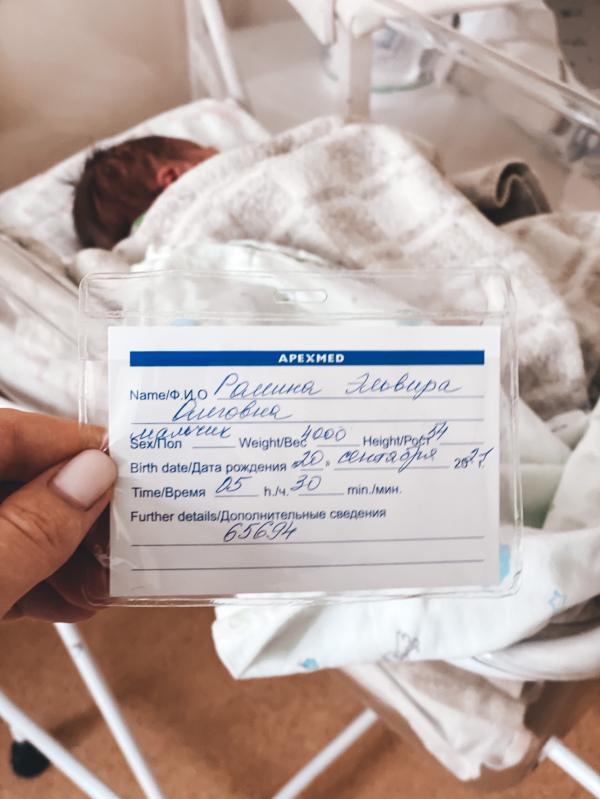 APEXMED
Name/Ф.И.О Ралина Эльвира
Олеговна
мальчик
Sex/Пол Weight/Вес 4000 Height/Рост 54
Birth date/Дата рождения «20» сентября 2021г.
Time/Время 05 h./ч. 30 min./мин.
Further details/Дополнительные сведения
65694